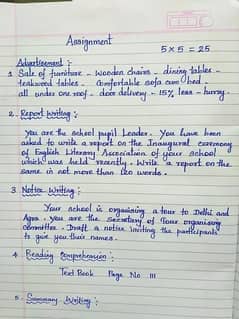 Assignment
5 x 5 = 25
Advertisement :-
1. Sale of furniture - wooden chairs - dining tables -
teakwood tables - comfortable sofa cum bed -
all under one roof - door delivery - 15% less - hurry.
2. Report Writing :-
You are the school pupil Leader. You have been
asked to write a report on the Inaugural ceremony
of English Literary Association of your school
which was held recently. Write a report on the
same in not more than 100 words.
3 Notice Writing :
Your school is organising a tour to Delhi and
Agra. You are the secretary of Tour organising
committee. Draft a notice inviting the participants
to give you their names.
4 Reading Comprehension :
Text Book Page No 111
5. Summary Writing :